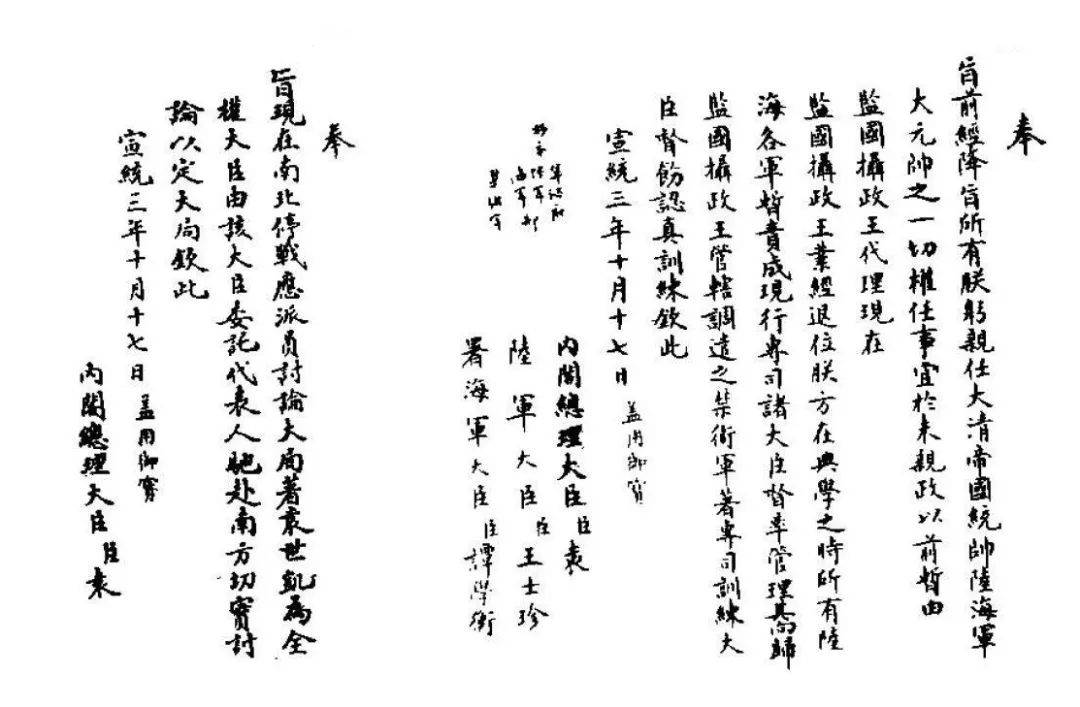 奉
旨前經降旨所有朕躬親任大清帝國統帥陸海軍
大元帥之一切權任事宜於未親政以前暫由
監國攝政王代理現在
監國攝政王業經退位朕方在典學之時所有陸
海各軍暫責成現行專司諸大臣督率管理其向歸
監國攝政王管轄調遣之禁衛軍著專司訓練大
臣督飭認真訓練欽此
宣統三年十月十七日 蓋用御寶
內閣總理大臣臣袁
陸軍大臣臣王士珍
署海軍大臣臣譚學衡
陸軍部
海軍部
奉
旨現在南北停戰應派員討論大局著袁世凱為全
權大臣由該大臣委託代表人馳赴南方切實討
論以定大局欽此
宣統三年十月十七日 蓋用御寶
內閣總理大臣臣袁